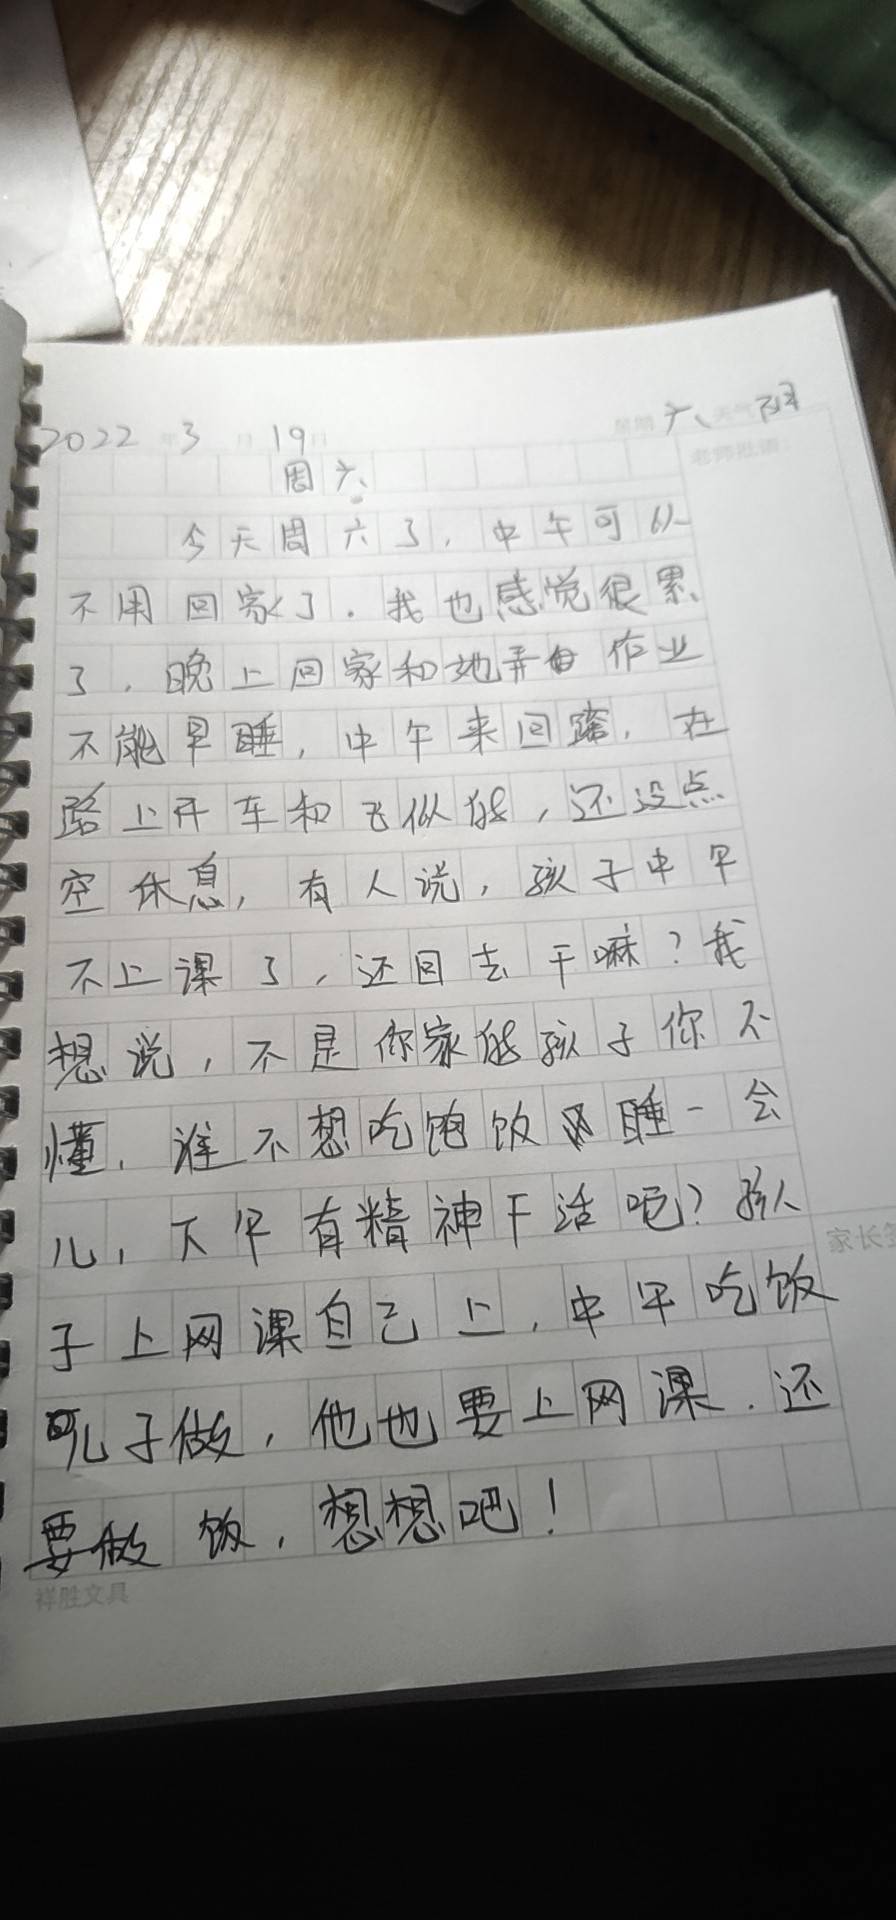 2022年3月19日 星期六 天气阴
老师批语：
周六
今天周六了，中午可以
不用回家了．我也感觉很累
了，晚上回家和她弄 作业
不能早睡，中午来回窜，在
路上开车和飞似的，还没点
空休息，有人说，孩子中午
不上课了，还回去干嘛？我
想说，不是你家的孩子你不
懂，谁不想吃饱饭 睡一会
儿，下午有精神干活呢？孩
子上网课自己上，中午吃饭
儿子做，他也要上网课．还
要做饭，想想吧！
家长签
祥胜文具